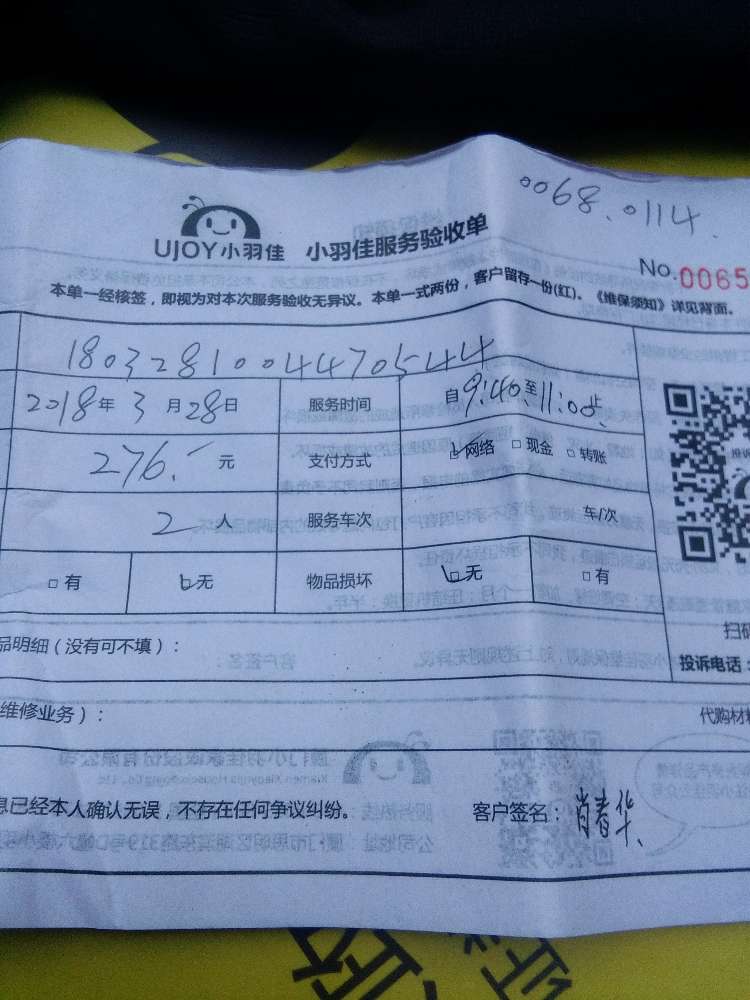 0068.0114.
UJOY小羽佳 小羽佳服务验收单
No.0065
本单一经核签，即视为对本次服务验收无异议。本单一式两份，客户留存一份(红)。《维保须知》详见背面。
18032810044470544
2018年3月28日 服务时间 自9:40至11:00止
276.-元 支付方式 网络 现金 转账
2人 服务车次 车/次
有 无 物品损坏 无 有
扫码
品明细（没有可不填）：
投诉电话：
维修业务）：
代购材料
息已经本人确认无误，不存在任何争议纠纷。 客户签名：肖春华